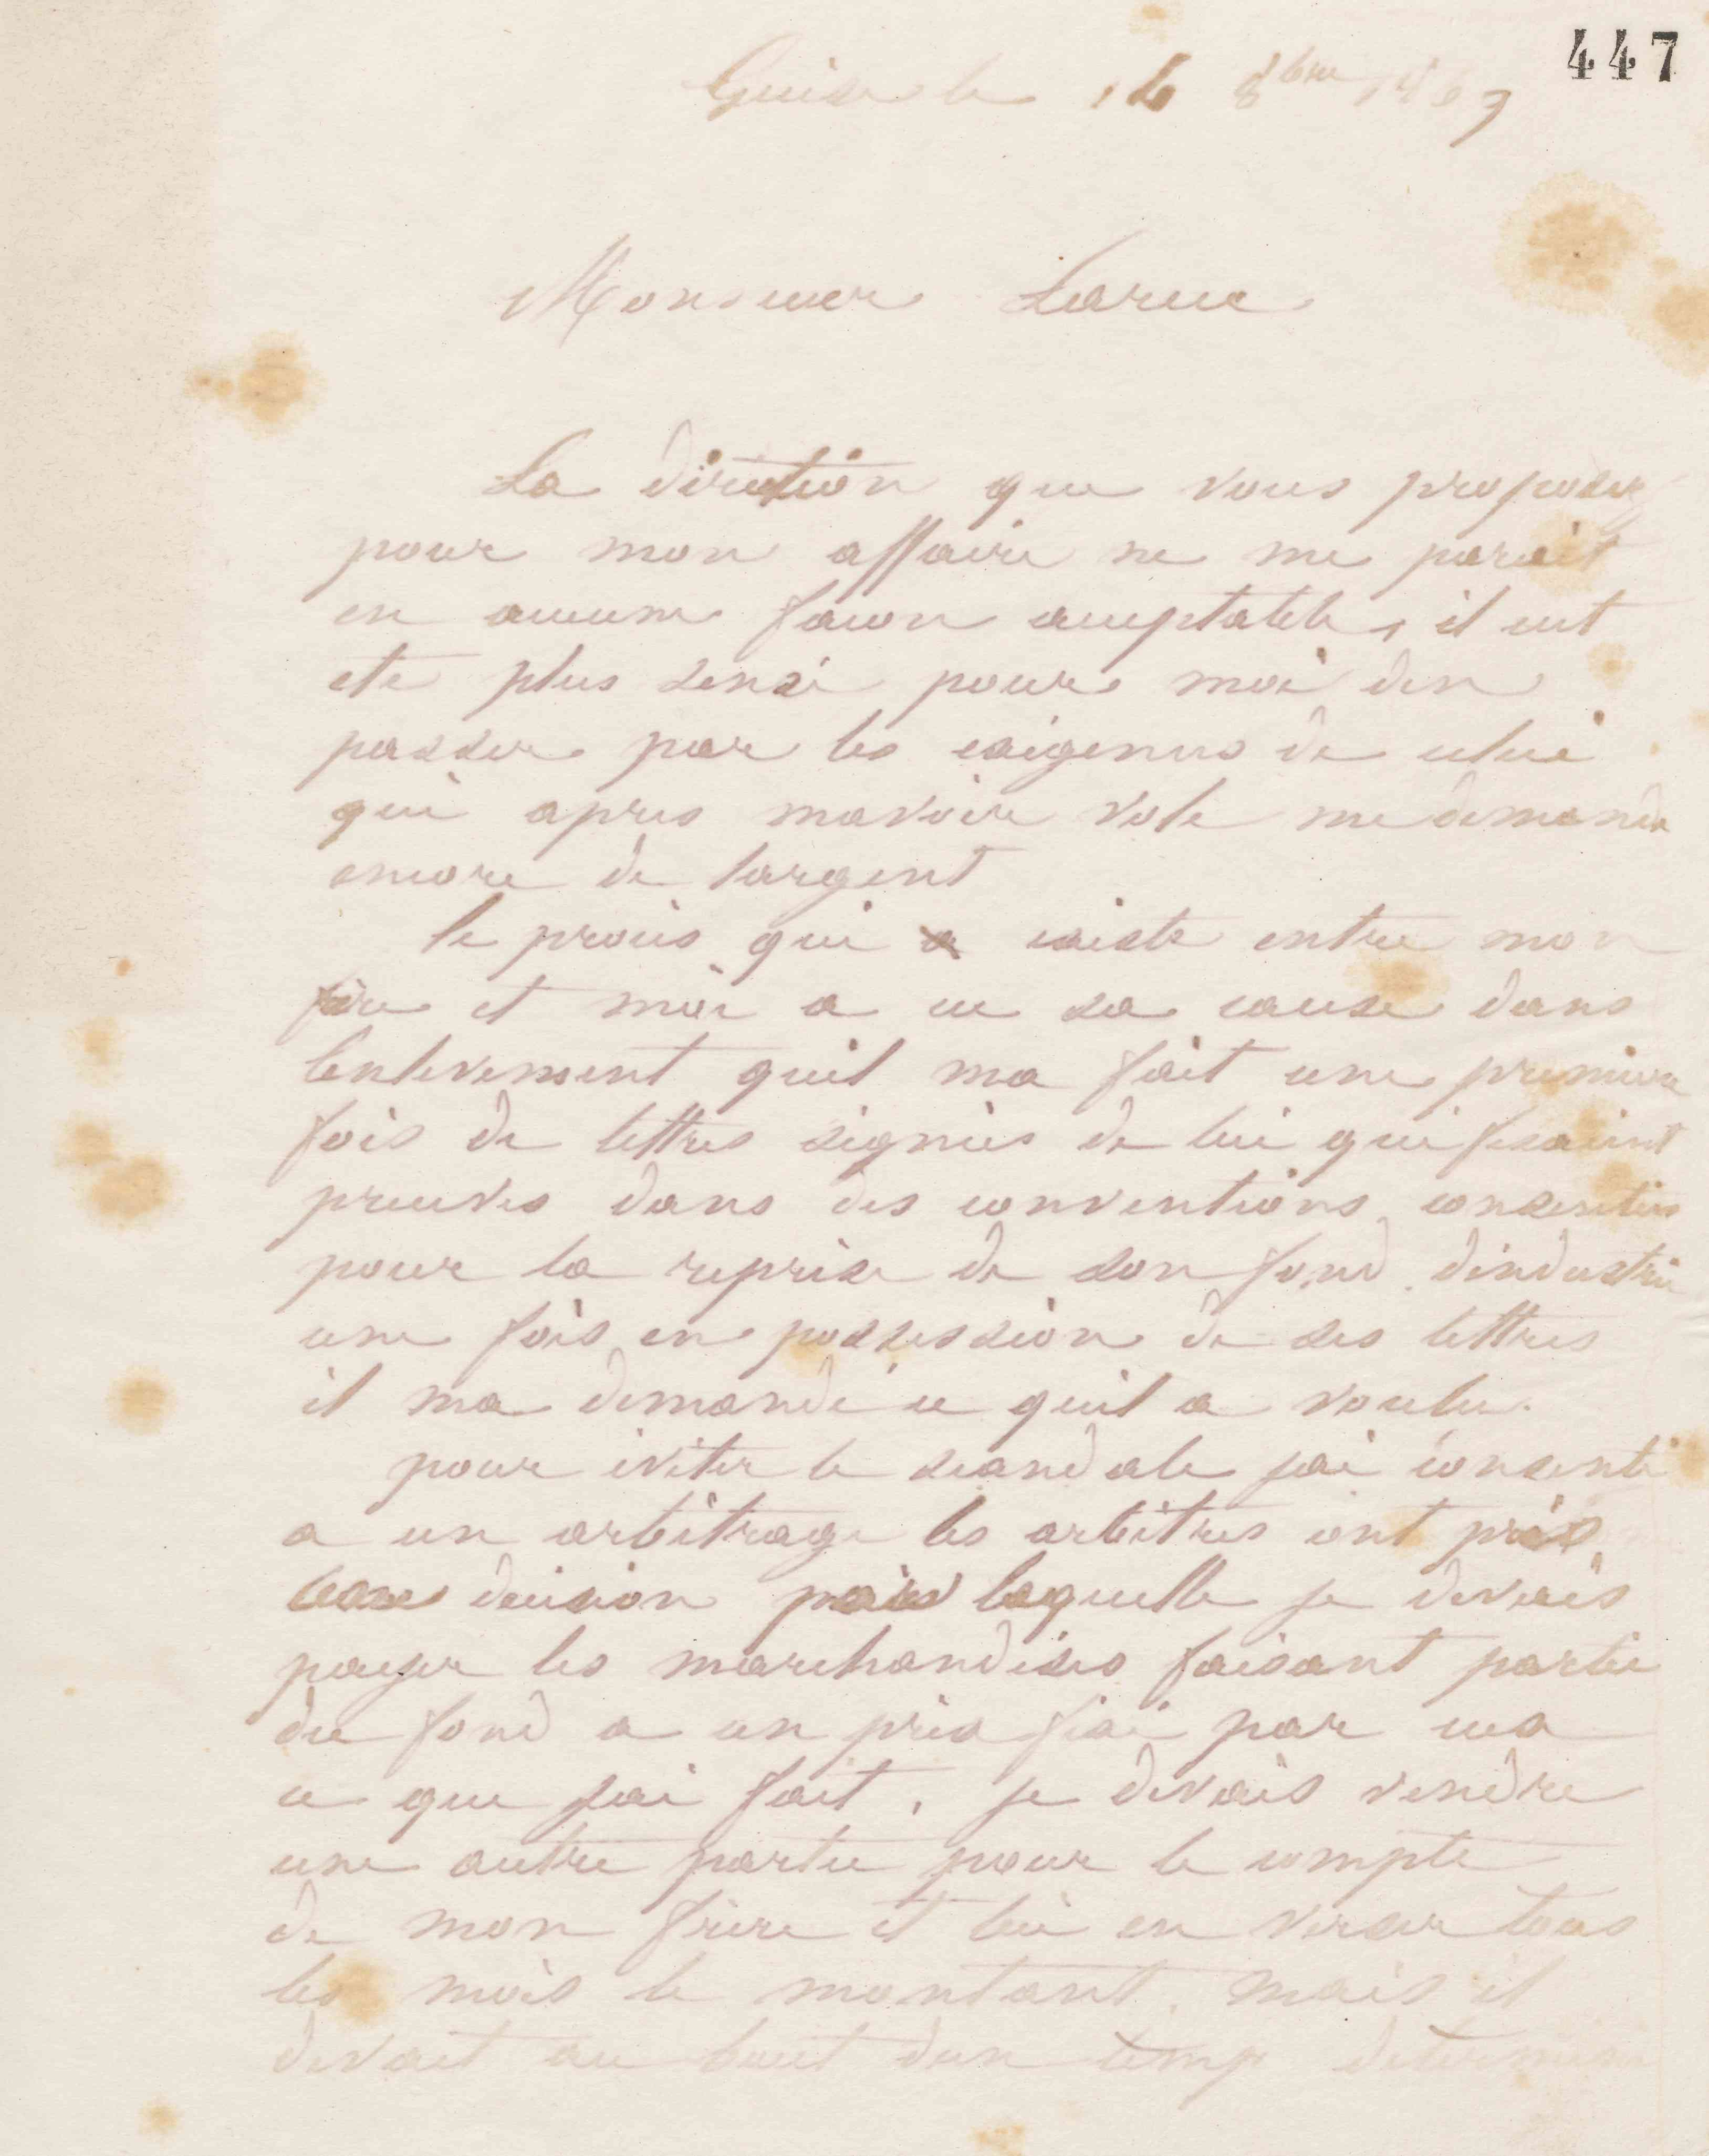 447
Guise le 16 8bre 1869
Monsieur Larue
La direction que vous proposez
pour mon affaire ne me parait
en aucune facon acceptable, il eut
ete plus sensé pour moi den
passer par les exigences de celui
qui apres mavoir volé me demande
encore de largent
le procès qui a existé entre mon
frère et moi a eu sa cause dans
lenlevement quil ma fait une premiere
fois de lettres signées de lui qui fesaient
preuves dans des conventions consenties
pour la reprise de son fond dindustrie
une fois en possession de ses lettres
il ma demandé ce quil a voulu.
pour éviter le scandale jai consenti
a un arbitrage les arbitres ont pris
une décision par laquelle je devais
payer les marchandises faisant partie
du fond a un prix fixé par eux
ce que jai fait. je devais vendre
une autre partie pour le compte
de mon frère et lui en verser tous
les mois le montant. mais il
devait au bout dun temp determiné